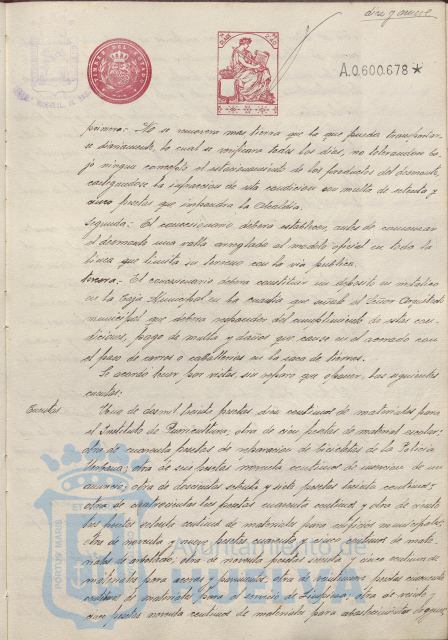 diez y nueve
TIMBRE DEL ESTADO
A.0.600.678*
primera:- No se moverá mas tierra que la que pueda transportar-
se diariamente, lo cual se verificará todos los días, no tolerandose ba-
jo ningun concepto el estacionamiento de los productos del desmonte,
castigandose la infraccion de esta condicion con multa de setenta y
cinco pesetas que impondra la Alcaldía.
Segunda:- El concesionario deberá establecer, antes de comenzar
el desmonte una valla arreglada al modelo oficial en toda la
linea que limita su terreno con la via publica.
tercera:- El concesionario deberá constituir un deposito en metalico
en la Caja Municipal en la cuantia que señale el Señor Arquitecto
municipal que debera responder del cumplimiento de estas con-
diciones, pago de multa y daños que cause en el acerado con
el paso de carros o caballerias en la saca de tierras.
Se acordó tener por vistas, sin reparo que oponer, las siguientes
cuentas:
Cuentas
Una de dosmil treinta pesetas diez centimos de materiales para
el Instituto de Puericultura; otra de cien pesetas de material escolar;
otra de cuarenta pesetas de reparacion de bicicletas de la Policia
Urbana; otra de seis pesetas noventa centimos de insercion de un
anuncio; otra de doscientas setenta y siete pesetas treinta centimos;
otra de cuatrocientas tres pesetas cuarenta centimos y otra de veinte
tres pesetas setenta centimos de materiales para edificios municipales;
otra de noventa y nueve pesetas cuarenta y cinco centimos de mate-
riales de arbolado; otra de noventa pesetas treinta y cinco centimos de
materiales para aceras y pavimentos; otra de veintiuna pesetas cuarenta
centimos de materiales para el servicio de Limpieza; otra de veinte
cinco pesetas noventa centimos de materiales para abastecimiento de aguas
PORTUS MARIS ET
Ayuntamiento de